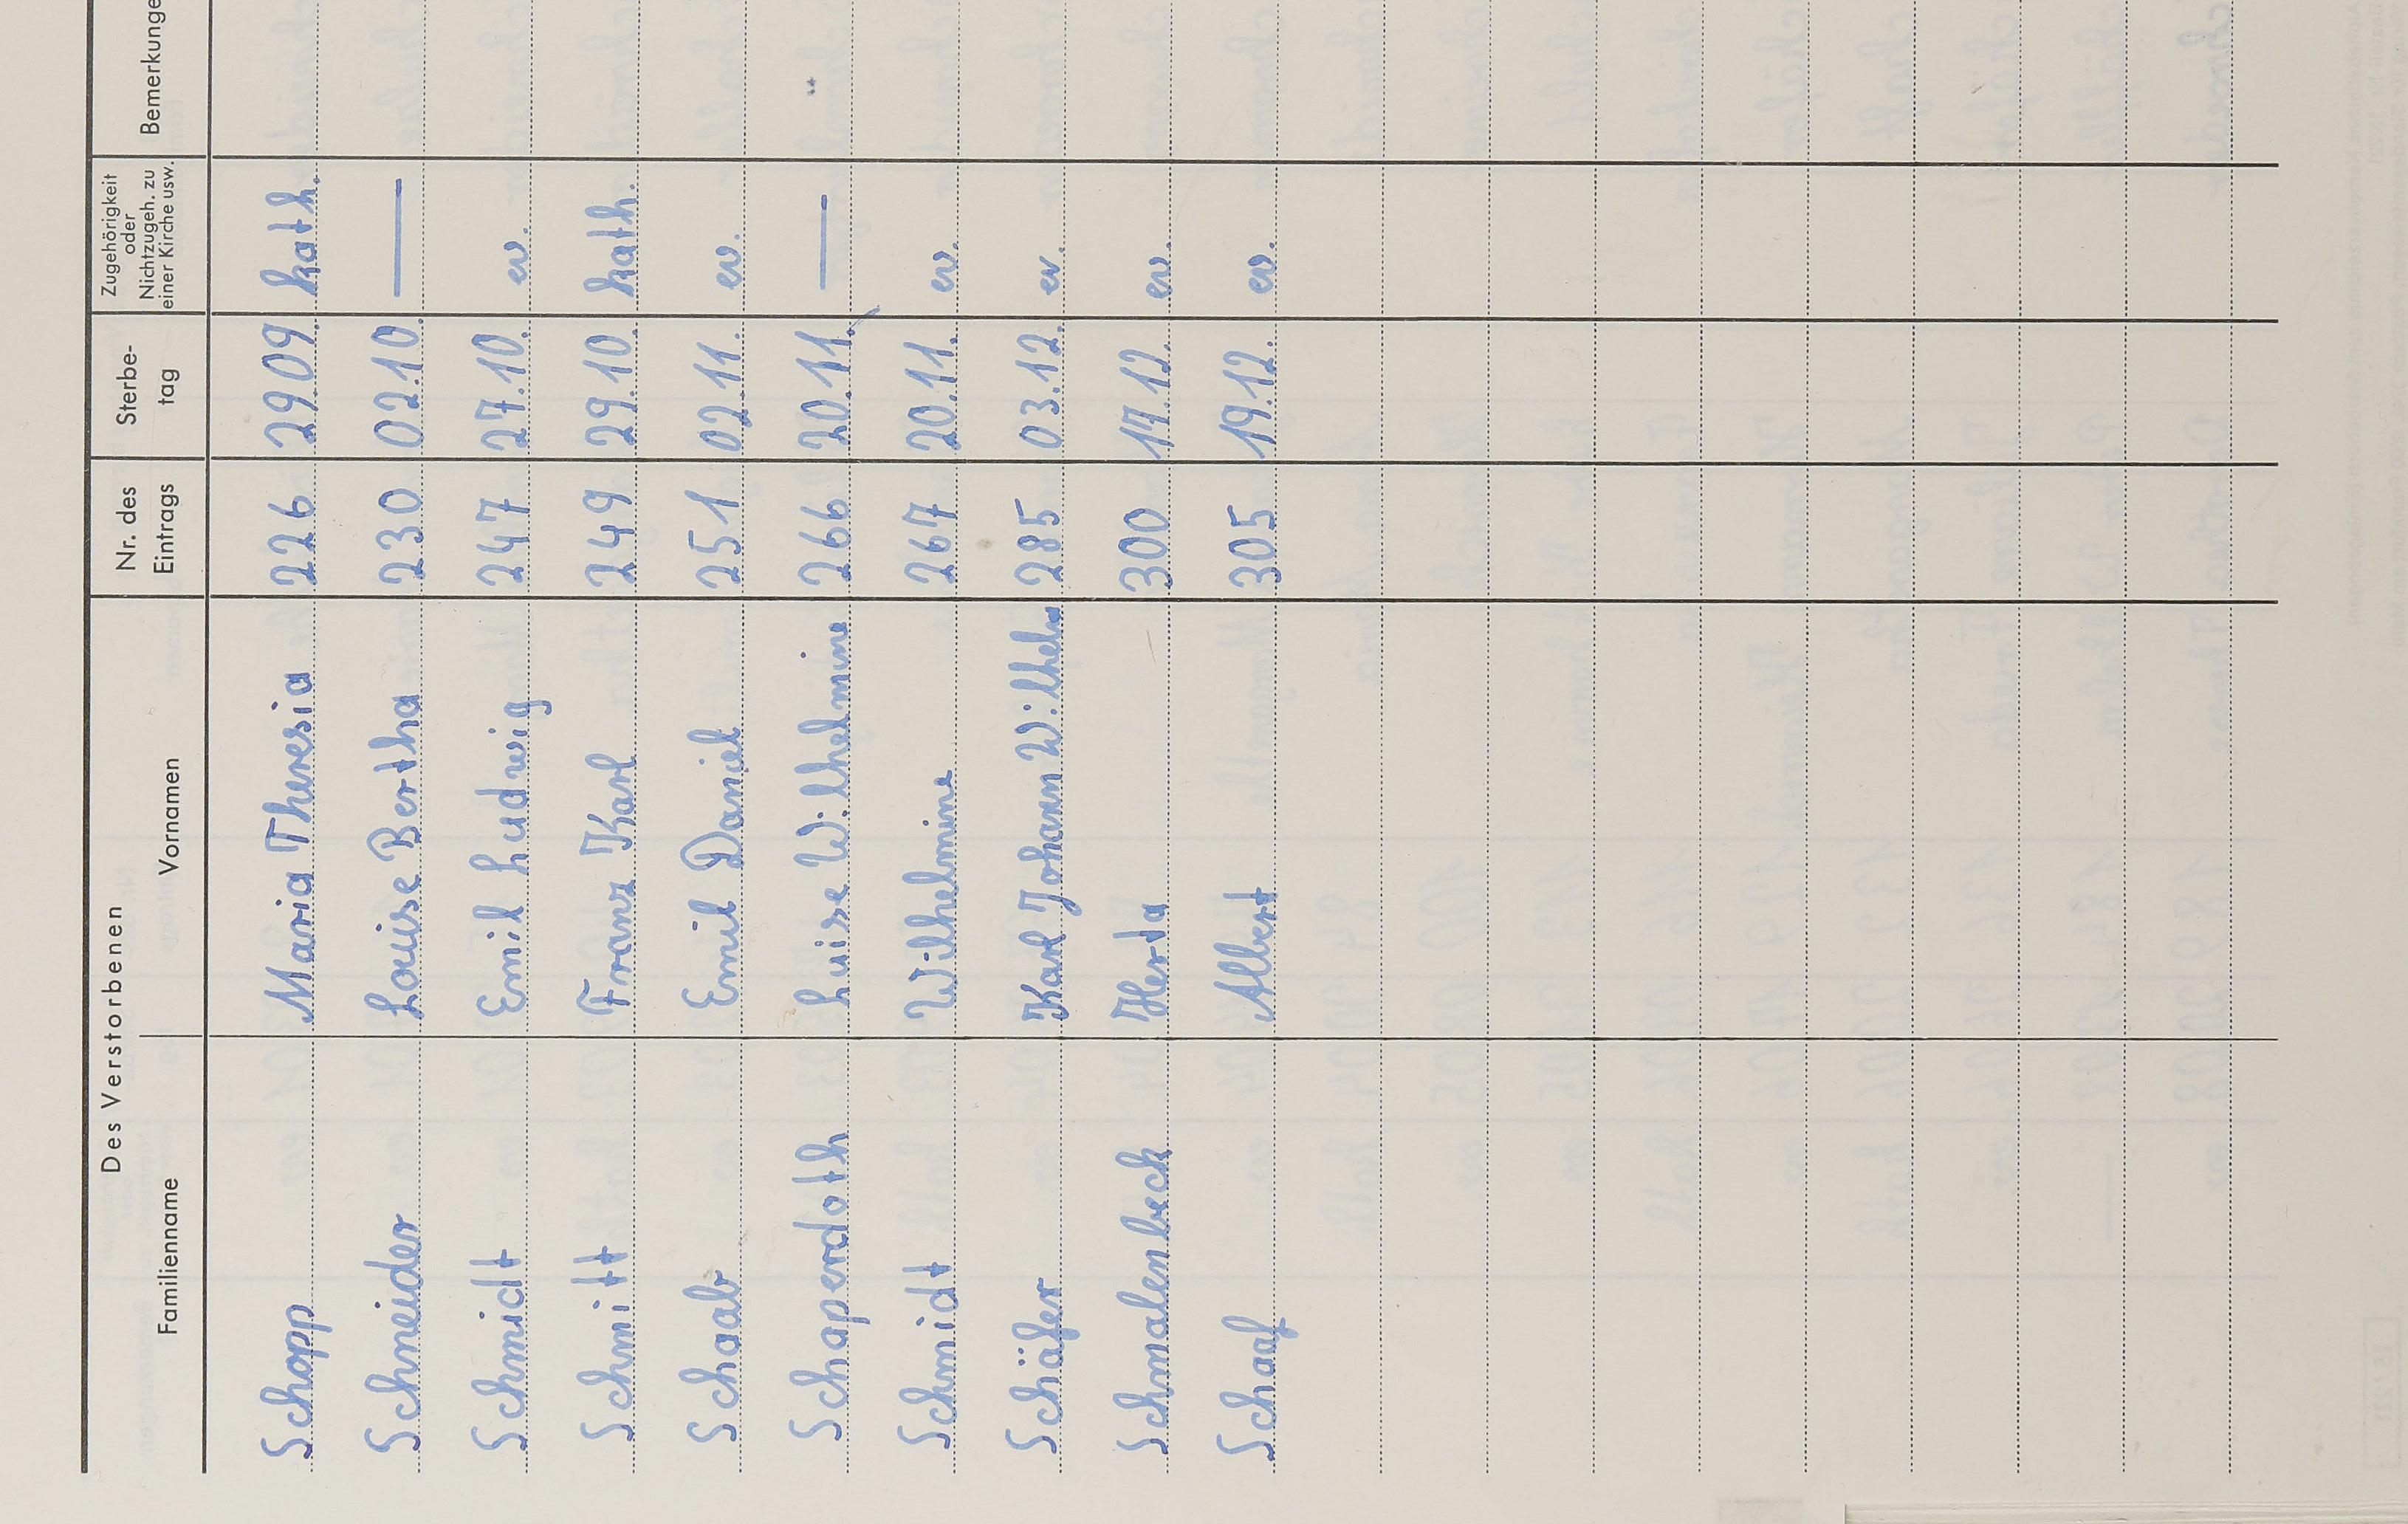 Des Verstorbenen
Familienname Vornamen
Nr. des Eintrags
Sterbe-
tag
Zugehörigkeit
oder
Nichtzugeh. zu
einer Kirche usw.
Bemerkunge
Schopp Maria Theresia 226 29.09. kath.
Schneider Louise Bertha 230 02.10. —
Schmidt Emil Ludwig 247 27.10. ev.
Schmitt Franz Karl 249 29.10. kath.
Schaab Emil Daniel 251 02.11. ev.
Schaperdoth Luise Wilhelmine 266 20.11. —
Schmidt Wilhelmine 267 20.11. ev.
Schäfer Karl Johann Wilhelm 285 03.12. ev.
Schmalenbeck Herta 300 17.12. ev.
Schaaf Albert 305 19.12. ev.